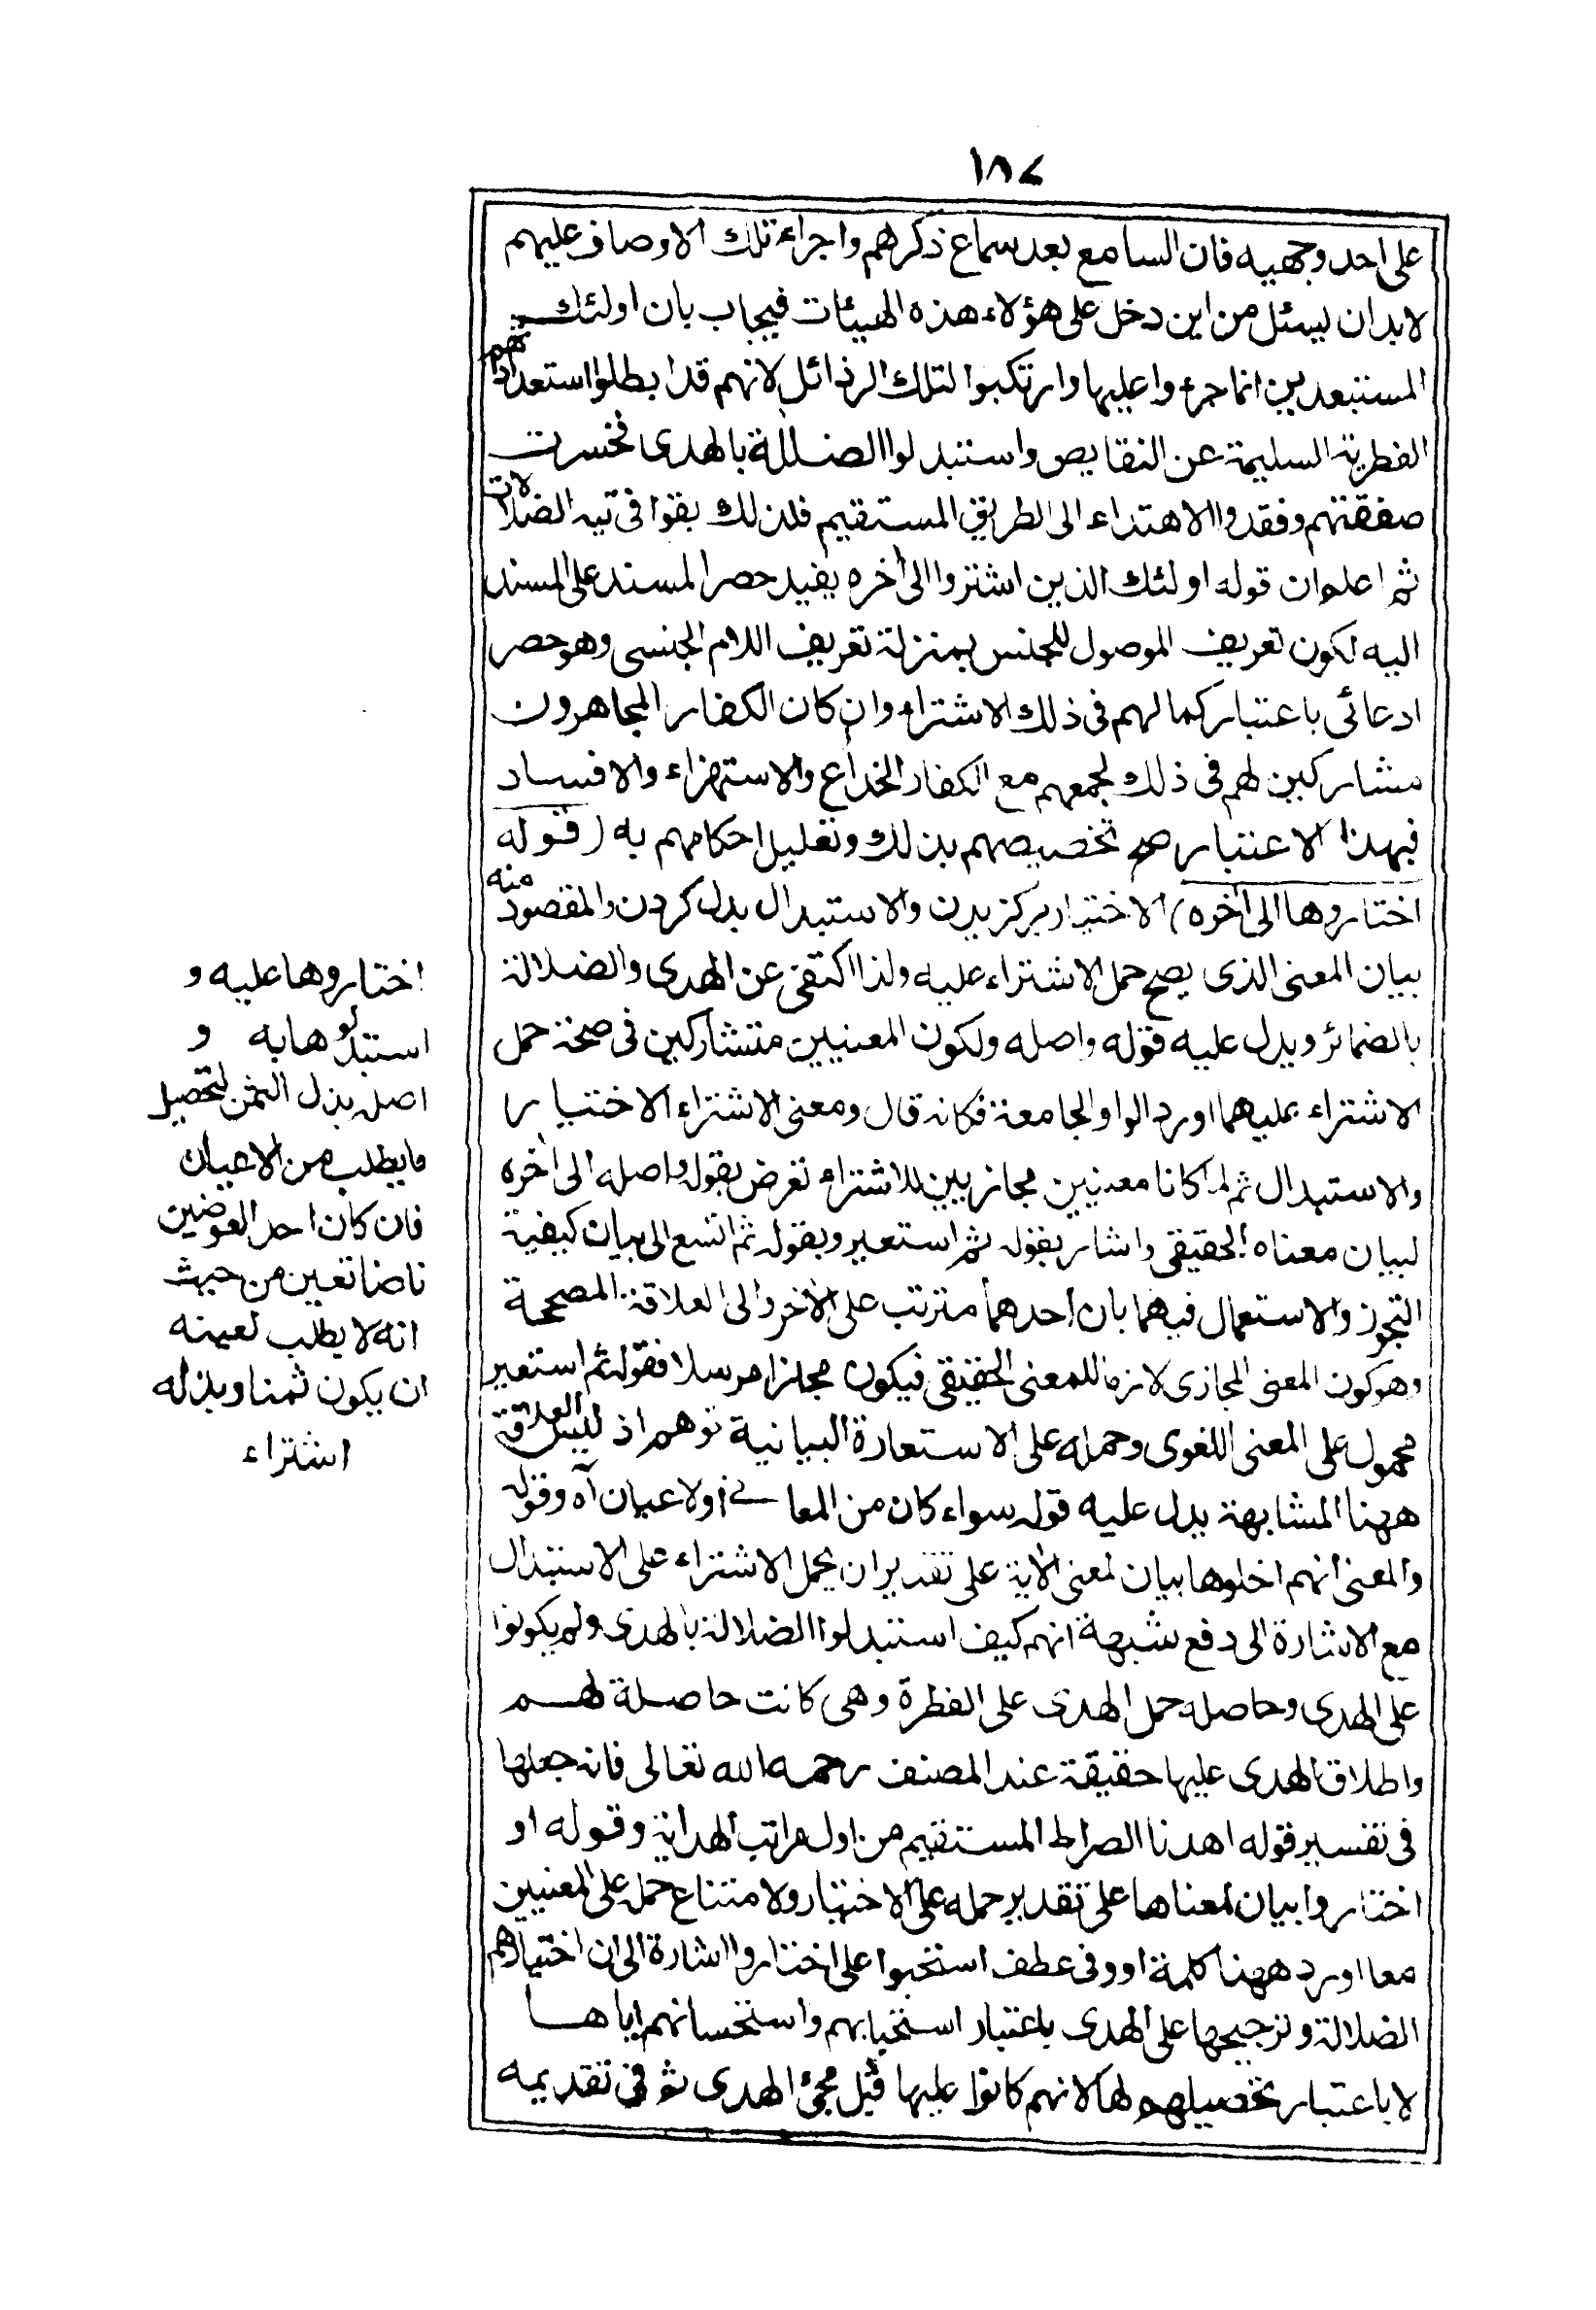 ١٨٤
على احد وجهيه فان السامع بعد سماع ذكرهم واجراء تلك الاوصاف عليهم
لا بد ان يسئل من اين دخل على هؤلاء هذه الهيئات فيجاب بان اولئك
المستبعدين انما جرءوا عليها وارتكبوا لتلك الرذائل لانهم قد ابطلوا استعداداتهم
الفطرية السليمة عن النقايص واستبدلوا الضلالة بالهدى فخسرت
صفقتهم وفقدوا الاهتداء الى الطريق المستقيم فلذلك بقوا فى تيه الضلالات
ثم اعلم ان قوله اولئك الذين اشتروا الى أخره يفيد حصر المسند على المسند
اليه لكون تعريف الموصول للجنس بمنزلة تعريف اللام الجنسى وهو حصر
ادعائى باعتبار كمالهم فى ذلك الاشتراء وان كان الكفار المجاهرون
مشاركين لهم فى ذلك لجمعهم مع الكفار الخداع والاستهزاء والافساد
فبهذا الاعتبار صح تخصيصهم بذلك وتعليل احكامهم به (قوله
اختاروها الى أخره) الاختيار بركزيدن والاستبدال بدل كردن والمقصود منه
بيان المعنى الذى يصح حمل الاشتراء عليه ولذا اكتفى عن الهدى والضلالة
بالضمائر ويدل عليه قوله واصله ولكون المعنيين متشاركين فى صحة حمل
الاشتراء عليهما اورد الواو الجامعة فكانه قال ومعنى الاشتراء الاختيار
والاستبدال ثم لما كانا معنيين مجازيين للاشتراء تعرض بقوله واصله الى أخره
لبيان معناه الحقيقى واشار بقوله ثم استعير وبقوله ثم اتسع الى بيان كيفية
التجوز والاستعمال فيهما بان احدهما مترتب على الأخر والى العلاقة المصححة
وهو كون المعنى المجازى لازما للمعنى الحقيقى فيكون مجازا مرسلا فقوله ثم استعير
محمول على المعنى اللغوى وحمله على الاستعارة البيانية توهم اذ ليس العلاقة
ههنا المشابهة يدل عليه قوله سواء كان من المعانى او لاعيان آه وقوله
والمعنى انهم اخلوها بيان لمعنى الأية على تقدير ان يحمل الاشتراء على الاستبدال
مع الاشارة الى دفع شبهة انهم كيف استبدلوا الضلالة بالهدى ولم يكونوا
على الهدى وحاصله حمل الهدى على الفطرة وهى كانت حاصلة لهم
واطلاق الهدى عليها حقيقة عند المصنف رحمه الله تعالى فانه جعلها
فى تفسير قوله اهدنا الصراط المستقيم من اول مراتب الهداية وقوله او
اختاروا بيان لمعناها على تقدير حمله على الاختيار ولامتناع حمله على المعنيين
معا اورد ههنا كلمة او وفى عطف استحبوا على اختاروا اشارة الى ان اختيارهم
الضلالة وترجيحها على الهدى باعتبار استحبابهم واستحسانهم اياها
لا باعتبار تحصيلهم لها لانهم كانوا عليها قبل مجئ الهدى ثم فى تقديمه
اختاروها عليه و
استبدلوها به و
اصله بذل الثمن لتحصيل
ما يطلب من الاعيان
فان كان احد العوضين
ناضا تعين من حيث
انه لا يطلب لعينه
ان يكون ثمنا وبذله
اشتراء